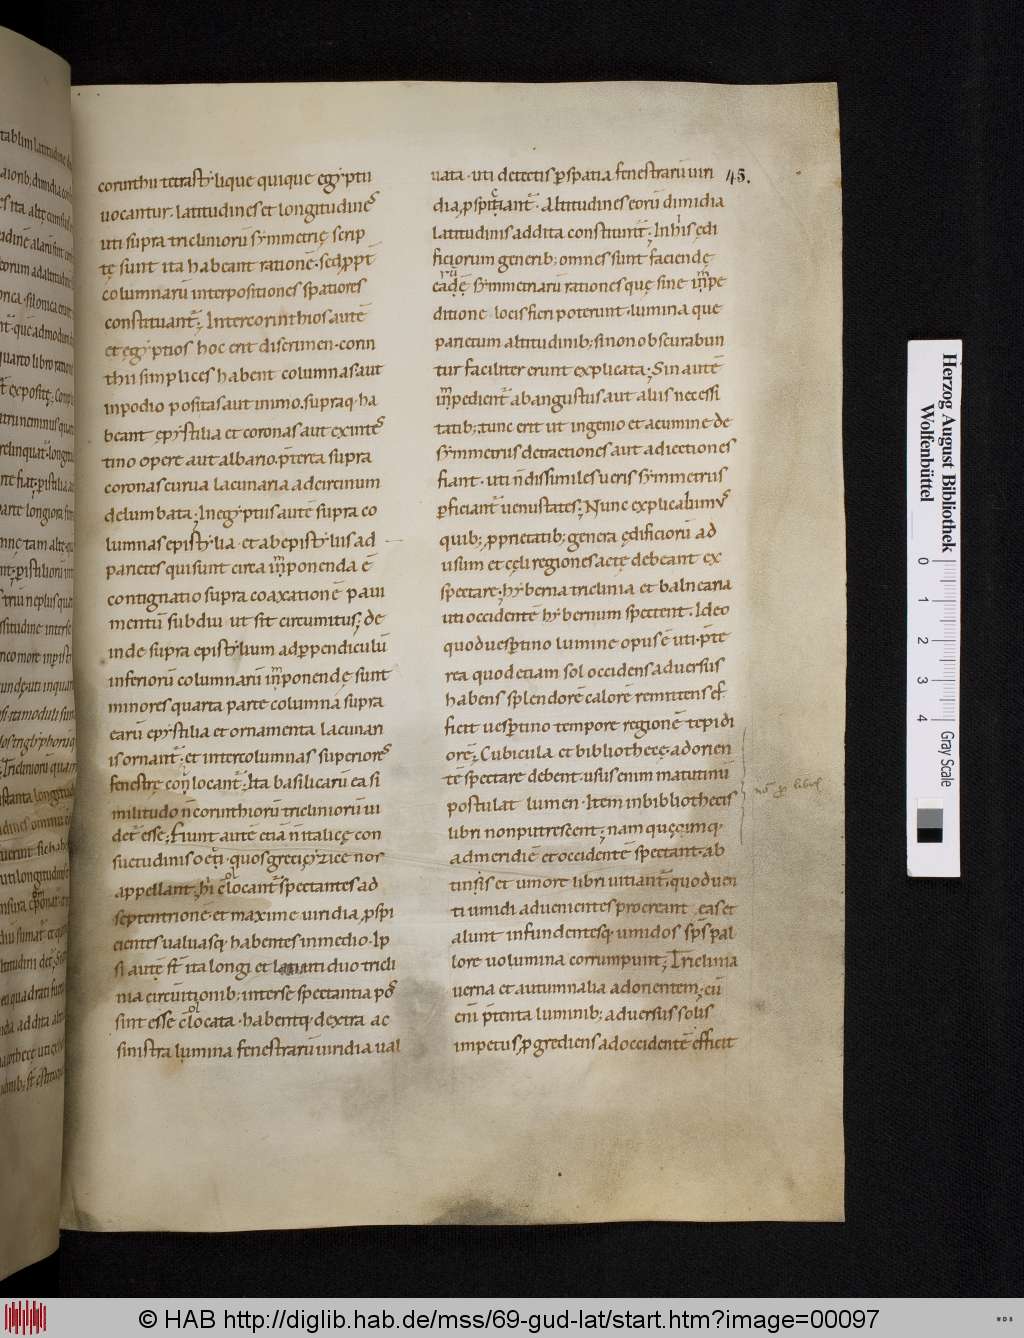 corinthii tetrastylique quique egyptii
uocantur. latitudines et longitudines
uti supra tricliniorū symmetrię scrip
tę sunt ita habeant rationē. sed ꝓpt̄
columnarū interpositiones spatiores
constituant̄. Inter corinthios autē
et egyptios hoc erit discrimen. corin
thii simplices habent columnas aut
in podio positas aut in imo. supraq; ha
beant epystilia et coronas aut ex intes
tino opere aut albario. p̄terea supra
coronas curua lacunaria ad circinum
delumbata; In egyptiis autē supra co
lumnas epistylia et ab epistyliis ad
parietes qui sunt circa īponenda ē
contignatio supra coaxationē paui
mentū subdiu ut sit circumitus; de
inde supra epistylium ad ꝑpendiculū
inferiorū columnarū īponendę sunt
minores quarta parte columnā supra
earū epystilia et ornamenta lacunari
is ornant̄. et inter columnas superiores
fenestrę conlocant̄. Ita basilicarū ea si
militudo n̄ corinthiorū tricliniorū ui
det̄ esse; Fiunt autē etiā n̄ italicę con
suetudinis oeci. quos greci cyzice nos
appellant. hi cōlocant̄ spectantes ad
septentrionē et maxime uiridia ꝓspi
cientes ualuasq; habentes in medio. Ip
si autē st̄ ita longi et lati uti duo tricli
nia circūitionib; inter se spectantia pos
sint esse cōlocata. habentq; dextra ac
sinistra lumina fenestrarū uiridia ual
45.
uata. uti de tectis ꝑ spatia fenestrarū uiri
dia ꝓspiciant̄. Altitudines eorū dimidia
latitudinis addita constituunt̄; In his ędi
ficiorum generib; omnes sunt faciendę
earūdē symmetriarū rationes quę sine īpe
ditione loci fieri poterunt. lumina que
parietum altitudinib; si non obscurabun
tur faciliter erunt explicata; Sin autē
īpedient̄ ab angustus aut aliis necessi
tatib; tunc erit ut ingenio et acumine de
symmetriis detractiones aut adiectiones
fiant. uti n̄ dissimiles ueris symmetriis
ꝑficiant̄ uenustates; Nunc explicabimus
quib; ꝓprietatib; genera ędificiorū ad
usum et cęli regiones acte debeant ex
spectare; hyberna triclinia et balnearia
uti occidentē hybernum spectent. Ideo
quod uespertino lumine opus ē uti. p̄te
rea quod etiam sol occidens aduersus
habens splendorē calorē remittens ef
ficit uespertino tempore regionē tepidi
orē; Cubicula et bibliothecę ad orien
tē spectare debent. usus enim matutinū
postulat lumen. Item in bibliothecis
libri non putrescent; nam quęcumq;
ad meridiē et occidentē spectant. ab
tineis et umore libri uitiant̄. quod uen
ti umidi aduenientes procreant eas et
alunt infundentesq; umidos sp̄s pal
lore uolumina corrumpunt; Triclinia
uerna et autumnalia ad orientem; cū
enī p̄tenta luminib; aduersus solis
impetus ꝓgrediens ad occidentē efficit
Herzog August Bibliothek
Wolfenbüttel
0 1 2 3 4
Gray Scale
© HAB http://diglib.hab.de/mss/69-gud-lat/start.htm?image=00097